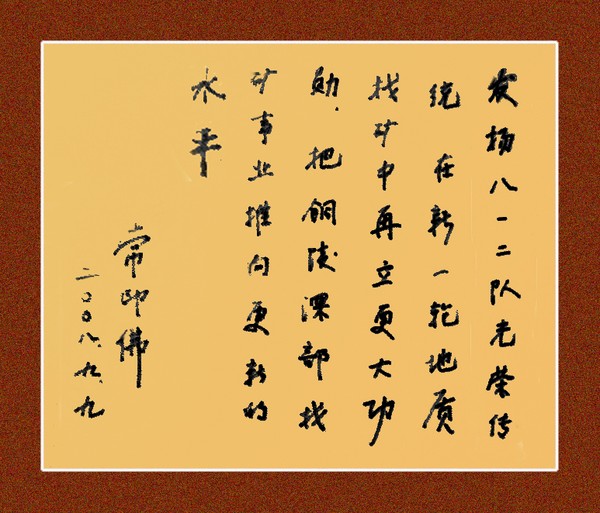 发扬八一二队光荣传
统 在新一轮地质
找矿中再立更大功
勋.把铜陵深部找
矿事业推向更新的
水平
常印佛
二〇〇八.九.九